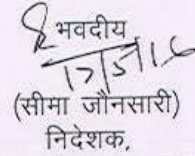 भवदीय
17/5/16
(सीमा जौनसारी)
निदेशक,